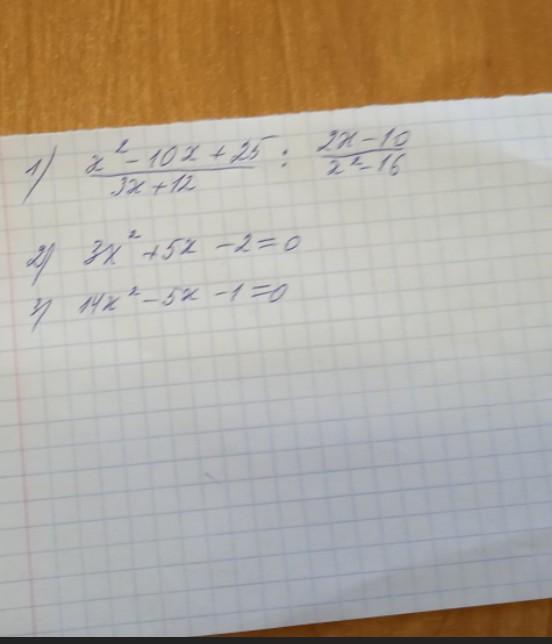 1) x² - 10x + 25 / 3x + 12 : 2x - 10 / x² - 16
2) 3x² + 5x - 2 = 0
3) 14x² - 5x - 1 = 0